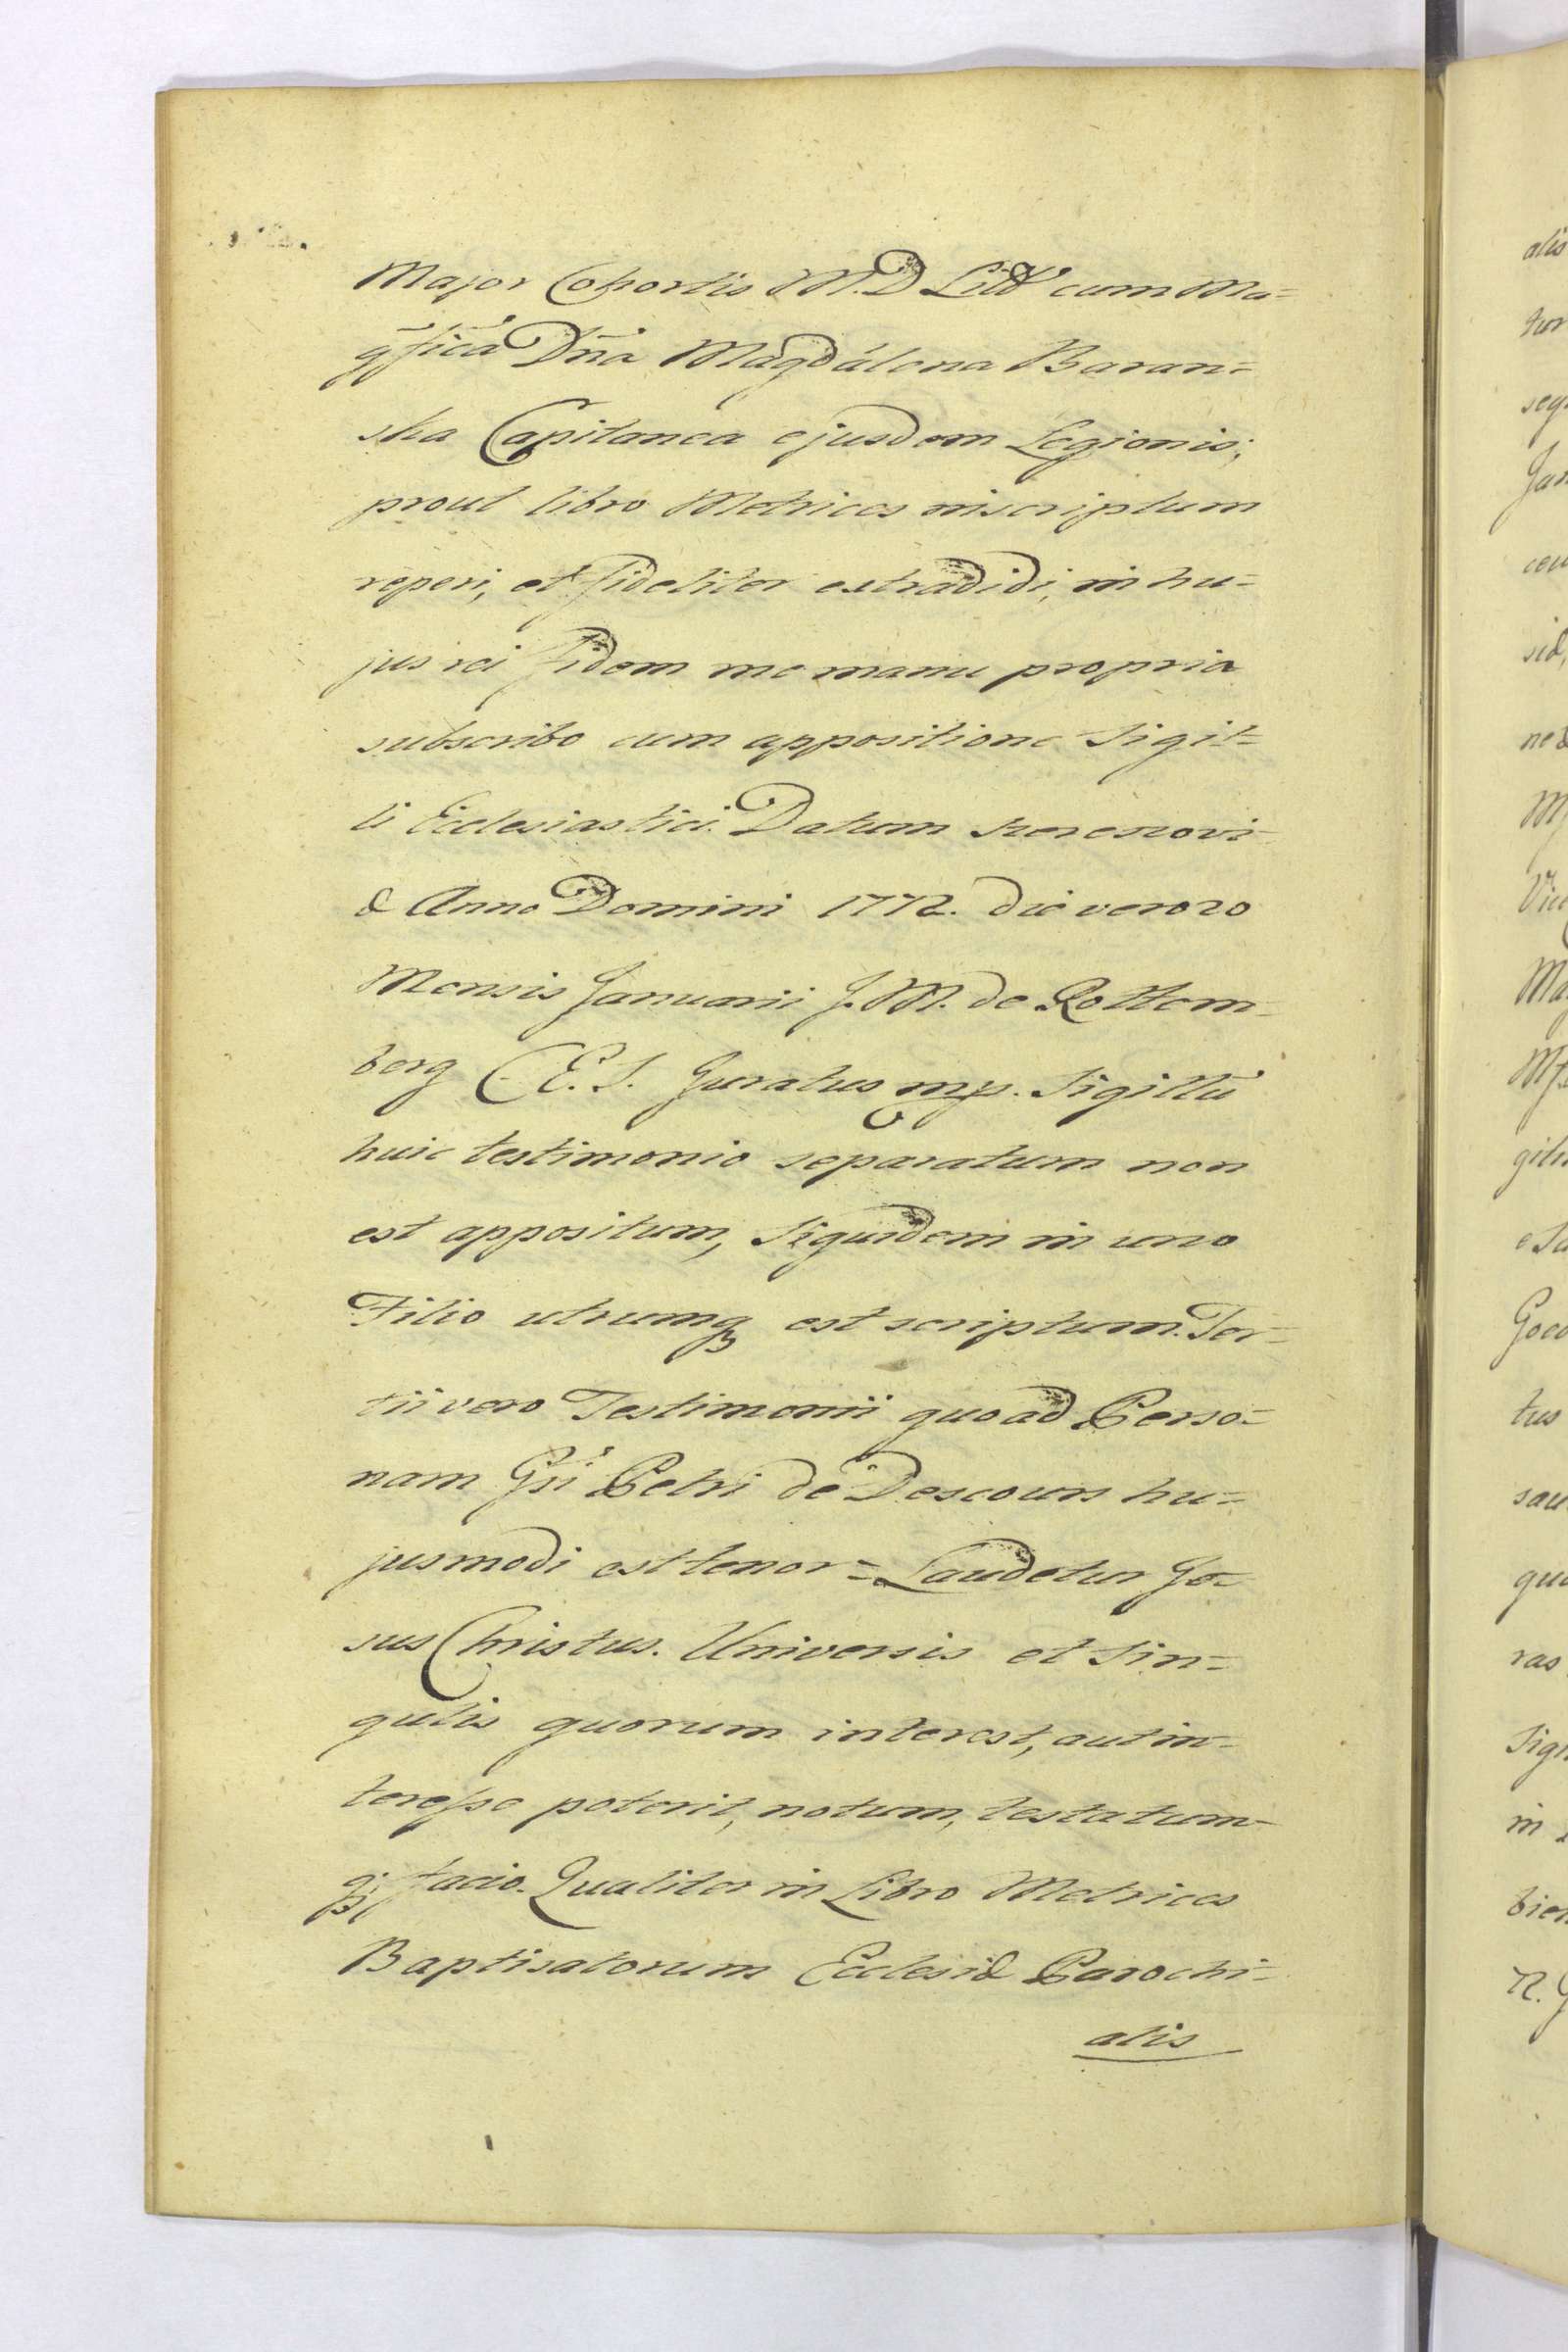 Major Cohortis M. D. Litt cum Ma=
gfica Dna Magdalena Baran=
ska Capitanea ejusdem Legionis;
prout libro Metrices inscriptum
reperi, et fideliter extradidi, in hu=
jus rei fidem me manu propria
subscribo cum appositione Sigil=
li Ecclesiastici. Datum
& Anno Domini 1772. die vero 20
Mensis Januarii J. M. de Rottem
berg C. E. S. Curatus mp. Sigillu
huic testimonio separatum non
est appositum, Siquidem in uno
Filio utrumq est scriptum. Ter=
tii vero Testimonii quoad Perso=
nam Gsi Petri de Descours hu=
jusmodi est tenor = Laudetur Je=
sus Christus. Universis et Sin=
gulis quorum interest, aut in=
teresse poterit, notum, testatum=
q; facio. Qualiter in Libro Metrices
Baptisatorum Ecclesiæ Parochi=
alis